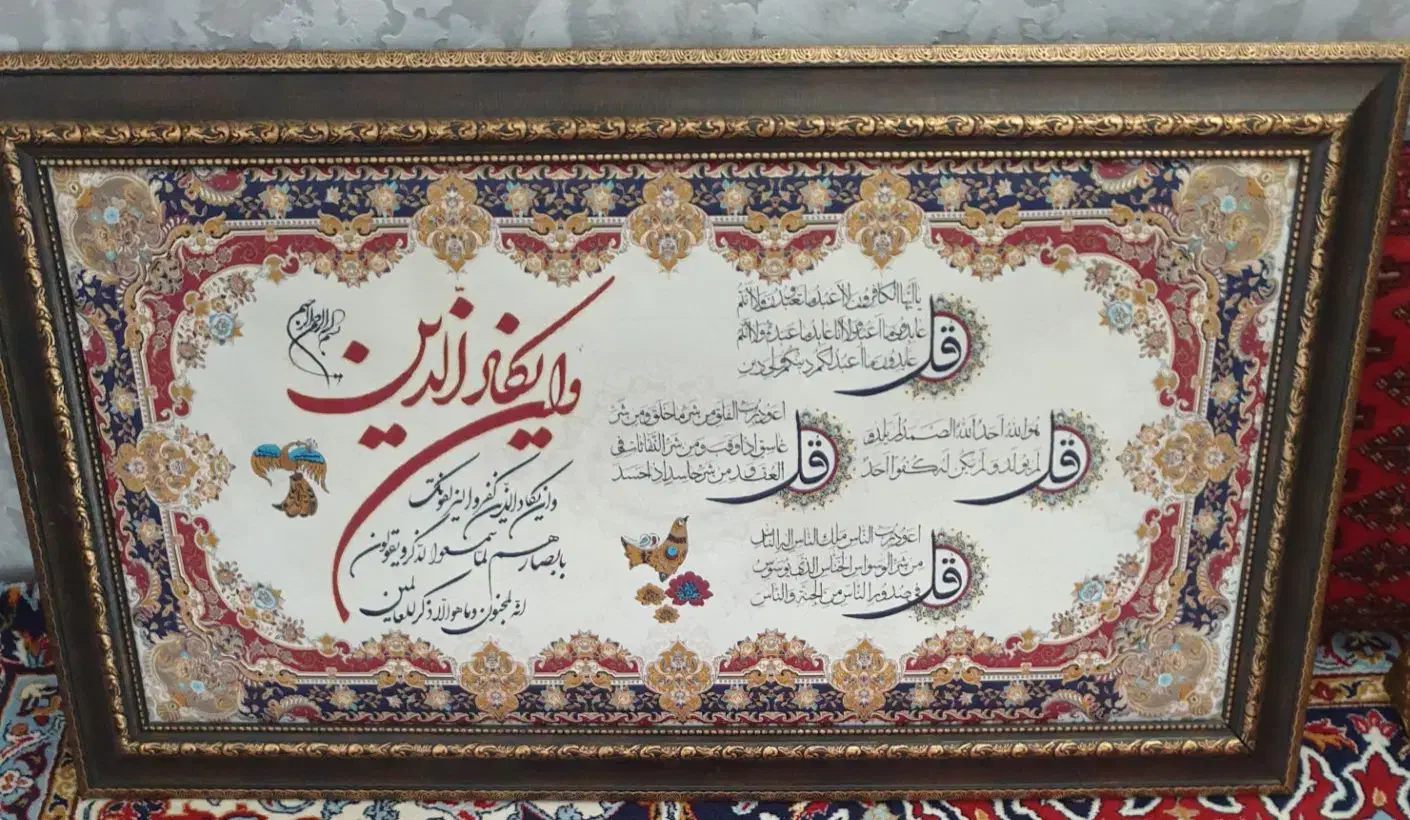 قل
یا ایها الکافرون لا اعبد ما تعبدون ولا انتم
عابدون ما اعبد ولا انا عابد ما عبدتم ولا انتم
عابدون ما اعبد لکم دینکم ولی دین
قل
هو الله احد الله الصمد لم یلد و
لم یولد و لم یکن له کفوا احد
قل
اعوذ برب الفلق من شر ما خلق و من شر
غاسق اذا وقب و من شر النفاثات فی
العقد و من شر حاسد اذا حسد
قل
اعوذ برب الناس ملک الناس اله الناس
من شر الوسواس الخناس الذی یوسوس
فی صدور الناس من الجنة والناس
بسم الله الرحمن الرحیم
وان یکاد الذین
وان یکاد الذین کفروا لیزلقونک
بابصارهم لما سمعوا الذکر و یقولون
انه لمجنون و ما هو الا ذکر للعالمین